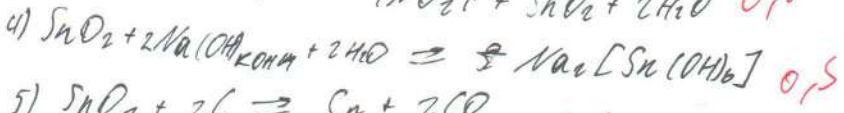 SnO2 + 2H2O
4) SnO2 + 2Na(OH)конц + 2H2O = Na2[Sn(OH)6] 0,5
5) SnO2 + 2C = Sn + 2CO